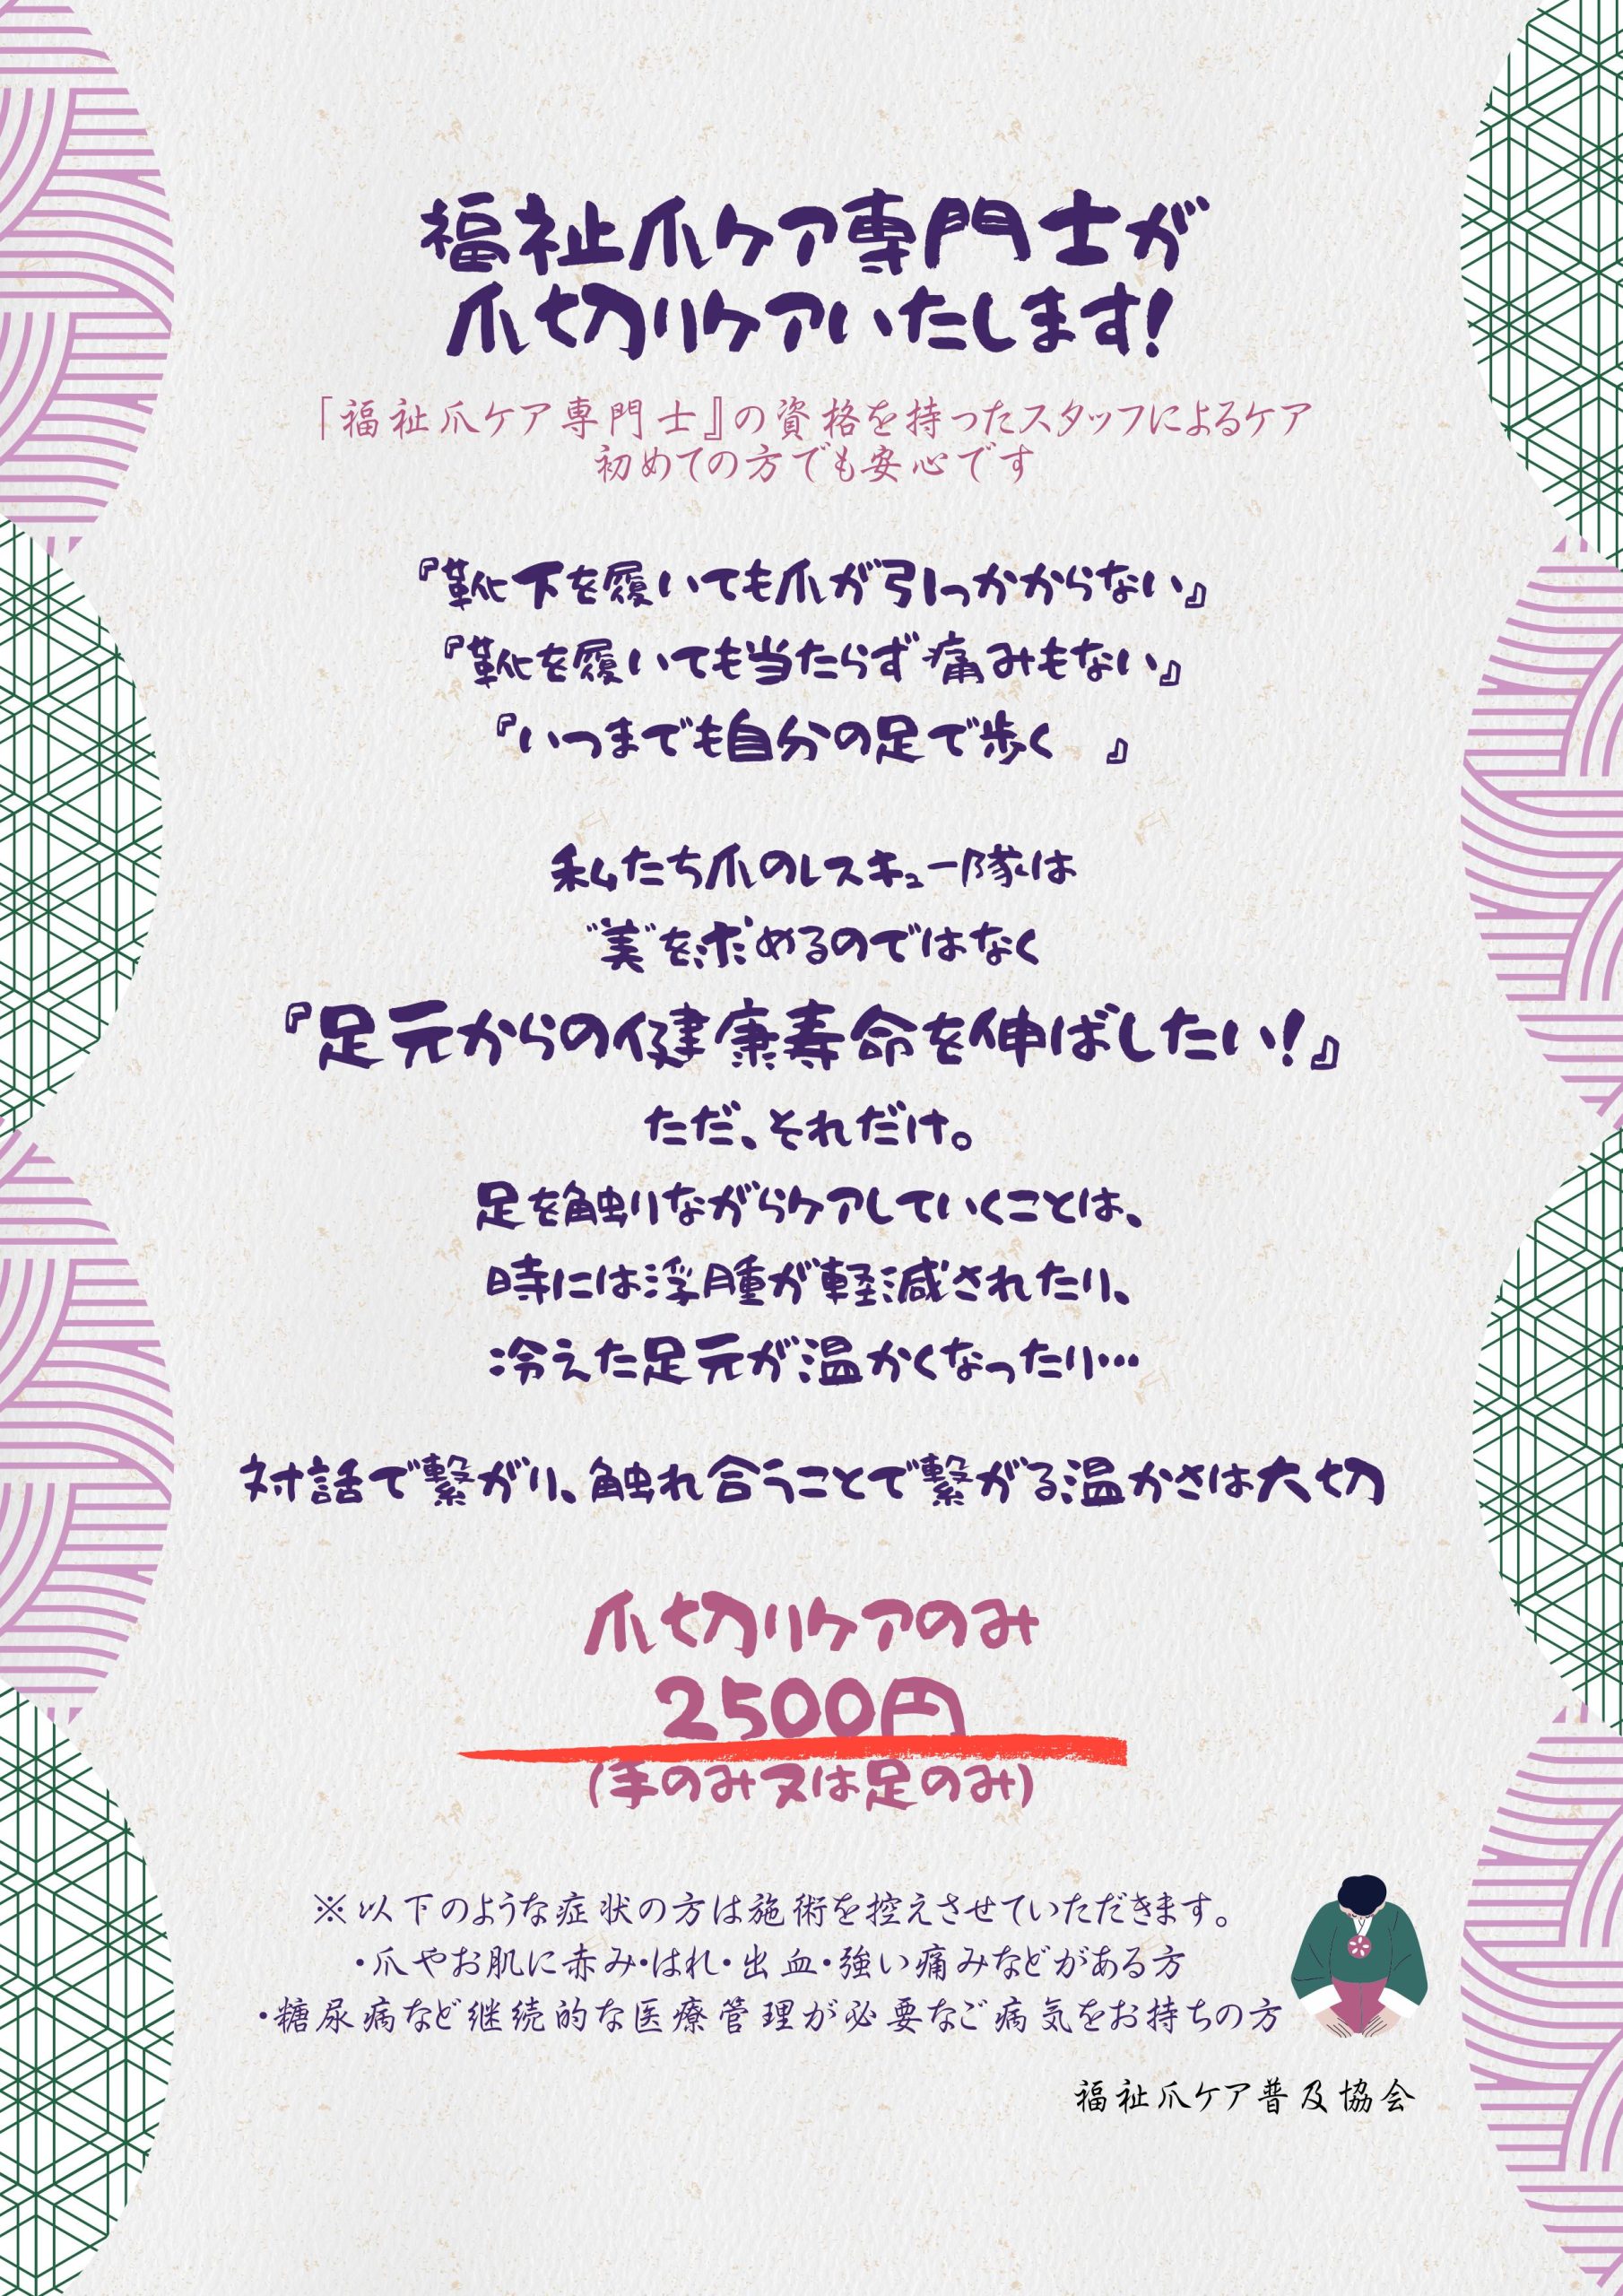 福祉爪ケア専門士が
爪切りケアいたします!
「福祉爪ケア専門士』の資格を持ったスタッフによるケア
初めての方でも安心です
『靴下を履いても爪が引っかからない』
『靴を履いても当たらず痛みもない』
『いつまでも自分の足で歩く　』
私たち爪のレスキュー隊は
"美"を求めるのではなく
『足元からの健康寿命を伸ばしたい!』
ただ、それだけ。
足を触りながらケアしていくことは、
時には浮腫が軽減されたり、
冷えた足元が温かくなったり…
対話で繋がり、触れ合うことで繋がる温かさは大切
爪切りケアのみ
2500円
(手のみ又は足のみ)
※以下のような症状の方は施術を控えさせていただきます。
・爪やお肌に赤み・はれ・出血・強い痛みなどがある方
・糖尿病など継続的な医療管理が必要なご病気をお持ちの方
福祉爪ケア普及協会